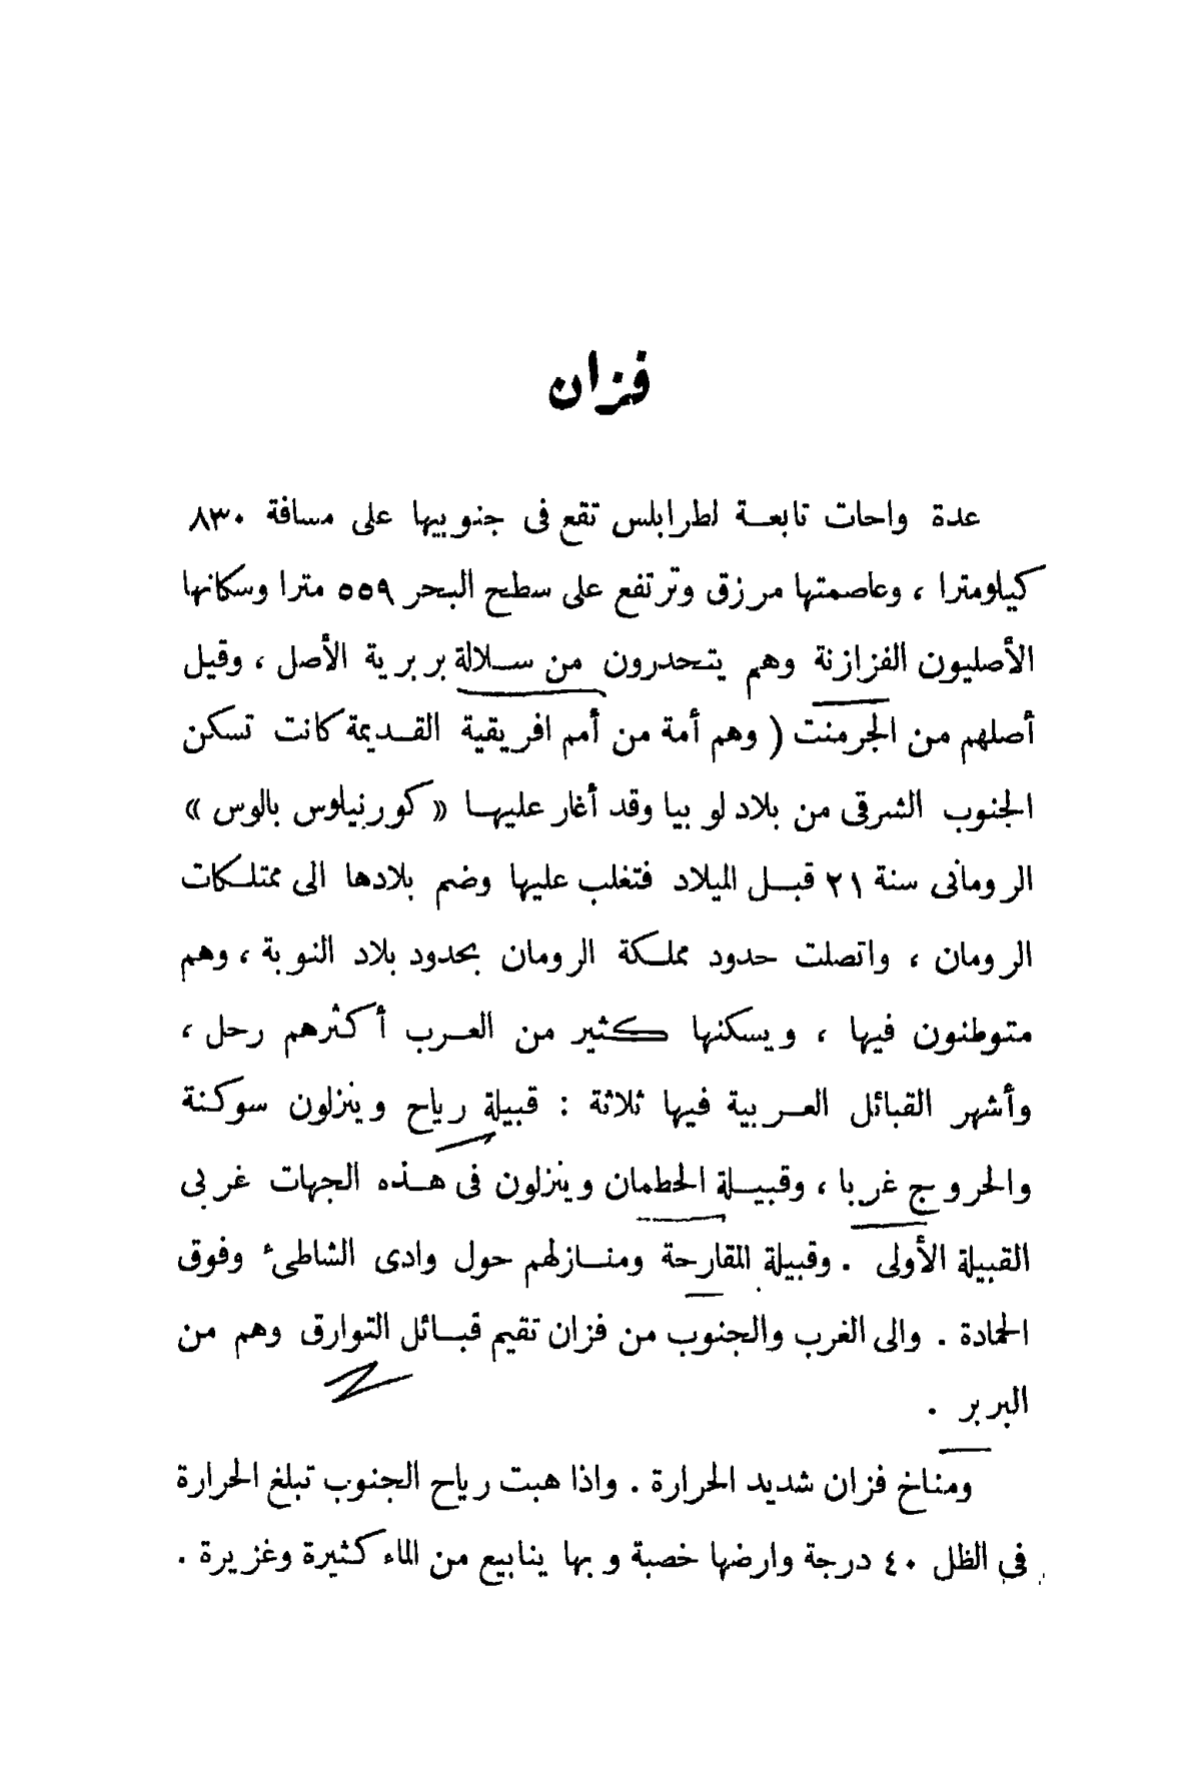 فزان
عدة واحات تابعة لطرابلس تقع فى جنوبيها على مسافة ٨٣٠
كيلومترا ، وعاصمتها مرزق وترتفع على سطح البحر ٥٥٩ مترا وسكانها
الأصليون الفزازنة وهم يتحدرون من سلالة بربرية الأصل ، وقيل
أصلهم من الجرمنت ( وهم أمة من أمم افريقية القديمة كانت تسكن
الجنوب الشرقى من بلاد لوبيا وقد أغار عليها « كورنيلوس بالوس »
الرومانى سنة ٢١ قبل الميلاد فتغلب عليها وضم بلادها الى ممتلكات
الرومان ، واتصلت حدود مملكة الرومان بحدود بلاد النوبة ، وهم
متوطنون فيها ، ويسكنها كثير من العرب أكثرهم رحل ،
وأشهر القبائل العربية فيها ثلاثة : قبيلة رياح وينزلون سوكنة
والحروج غربا ، وقبيلة الحطمان وينزلون فى هذه الجهات غربى
القبيلة الأولى . وقبيلة المقارحة ومنازلهم حول وادى الشاطىء وفوق
الحمادة . والى الغرب والجنوب من فزان تقيم قبائل التوارق وهم من
البربر .
ومناخ فزان شديد الحرارة . واذا هبت رياح الجنوب تبلغ الحرارة
فى الظل ٤٠ درجة وارضها خصبة وبها ينابيع من الماء كثيرة وغزيرة .